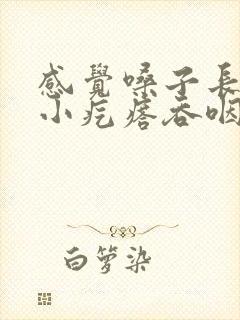 感覺嗓子長
小疙瘩吞咽
白箩染